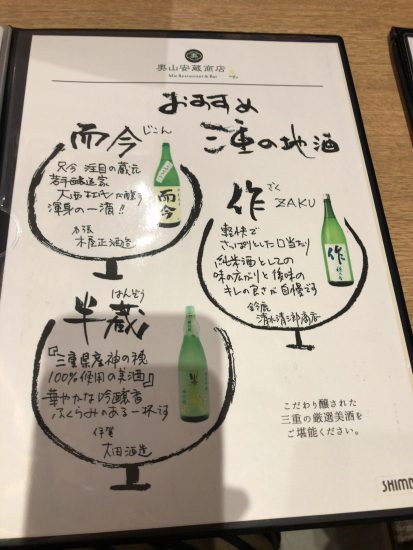 奥山安蔵商店
Mie Restaurant & Bar
おすすめ
三重の地酒
而今
じこん
只今 注目の蔵元
若手醸造家
大西杜氏が醸す
渾身の一滴!!
名張
木屋正酒造
而今
作
ざく
ZAKU
軽快で
さっぱりとした口当たり
純米酒としての
味の広がりと後味の
キレの良さが自慢です
鈴鹿
清水清三郎商店
作
半蔵
はんぞう
『三重県産神の穂
100%使用の美酒』
華やかな吟醸香
ふくらみのある一杯です
伊賀
大田酒造
こだわり醸された
三重の厳選美酒を
ご堪能ください。